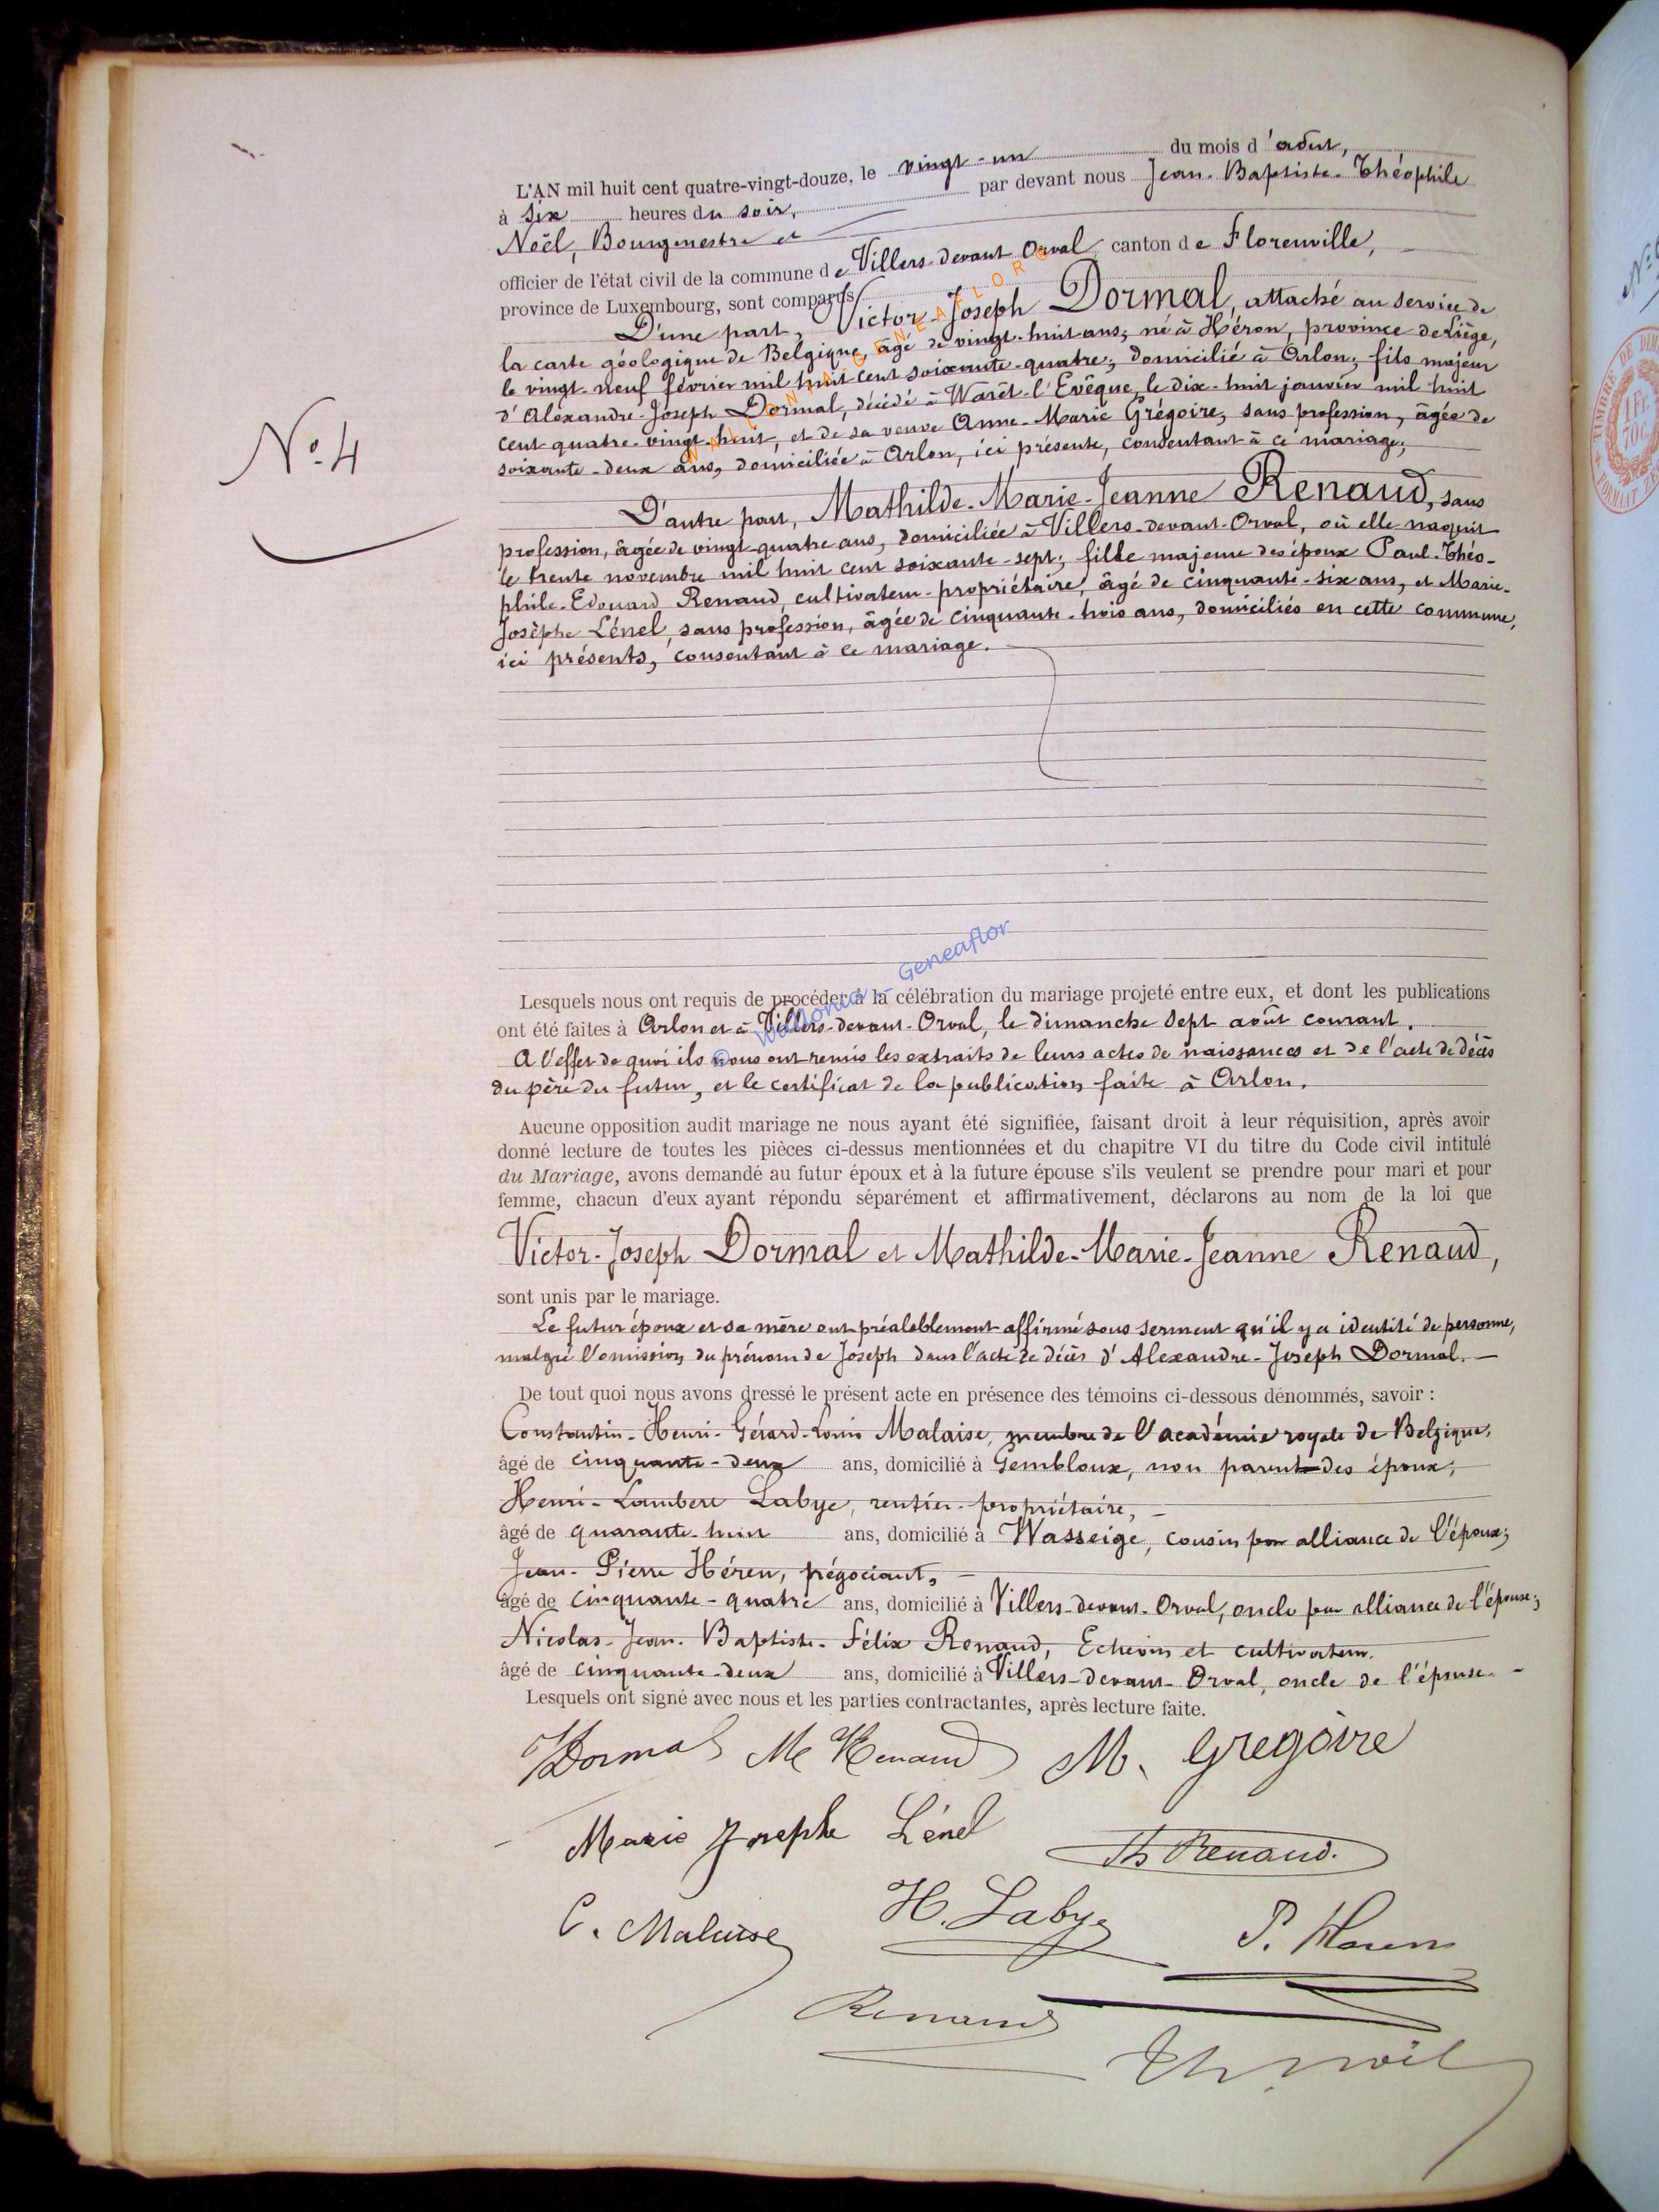 N° 4
L'AN mil huit cent quatre-vingt-douze, le vingt-un du mois d'août,
à six heures du soir, par devant nous Jean-Baptiste-Théophile
Noël, Bourgmestre et
officier de l'état civil de la commune de Villers-devant-Orval, canton de Florenville,
province de Luxembourg, sont comparus
D'une part, Victor-Joseph Dormal, attaché au service de
la carte géologique de Belgique, âgé de vingt-huit ans, né à Héron, province de Liège,
le vingt-neuf février mil huit cent soixante-quatre, domicilié à Arlon, fils majeur
d'Alexandre-Joseph Dormal, décédé à Warêt-l'Evêque, le dix-huit janvier mil huit
cent quatre-vingt-huit, et de sa veuve Anne-Marie Grégoire, sans profession, âgée de
soixante-deux ans, domiciliée à Arlon, ici présente, consentant à ce mariage;
D'autre part, Mathilde-Marie-Jeanne Renaud, sans
profession, âgée de vingt-quatre ans, domiciliée à Villers-devant-Orval, où elle naquit
le trente novembre mil huit cent soixante-sept; fille majeure des époux Paul-Théo-
phile-Edouard Renaud, cultivateur-propriétaire, âgé de cinquante-six ans, et Marie-
Josèphe Lénel, sans profession, âgée de cinquante-trois ans, domiciliés en cette commune,
ici présents, consentant à ce mariage.
© Wallonia - Geneaflor
WALLONIA - GENEAFLOR ©
Lesquels nous ont requis de procéder à la célébration du mariage projeté entre eux, et dont les publications
ont été faites à Arlon et à Villers-devant-Orval, le dimanche sept août courant.
A l'effet de quoi ils nous ont remis les extraits de leurs actes de naissances et de l'acte de décès
du père du futur, et le certificat de la publication faite à Arlon.
Aucune opposition audit mariage ne nous ayant été signifiée, faisant droit à leur réquisition, après avoir
donné lecture de toutes les pièces ci-dessus mentionnées et du chapitre VI du titre du Code civil intitulé
du Mariage, avons demandé au futur époux et à la future épouse s'ils veulent se prendre pour mari et pour
femme, chacun d'eux ayant répondu séparément et affirmativement, déclarons au nom de la loi que
Victor-Joseph Dormal et Mathilde-Marie-Jeanne Renaud,
sont unis par le mariage.
Le futur époux et sa mère ont préalablement affirmé sous serment qu'il y a identité de personne,
malgré l'omission du prénom de Joseph dans l'acte de décès d'Alexandre-Joseph Dormal.
De tout quoi nous avons dressé le présent acte en présence des témoins ci-dessous dénommés, savoir :
Constantin-Henri-Gérard-Louis Malaise, membre de l'académie royale de Belgique,
âgé de cinquante-deux ans, domicilié à Gembloux, non parent des époux;
Henri-Lambert Labye, rentier-propriétaire,
âgé de quarante-huit ans, domicilié à Wasseige, cousin par alliance de l'époux;
Jean-Pierre Héren, négociant,
âgé de cinquante-quatre ans, domicilié à Villers-devant-Orval, oncle par alliance de l'épouse;
Nicolas-Jean-Baptiste-Félix Renaud, Echevin et cultivateur,
âgé de cinquante-deux ans, domicilié à Villers-devant-Orval, oncle de l'épouse.
Lesquels ont signé avec nous et les parties contractantes, après lecture faite.
VDormal M Renaud M. Gregoire
Marie Josephe Lénel Th Renaud.
C. Malaise H. Labye P. Heren
Renaud
Th. Noël
TIMBRE DE DIM
1 Fr. 70 C.
FORMAT